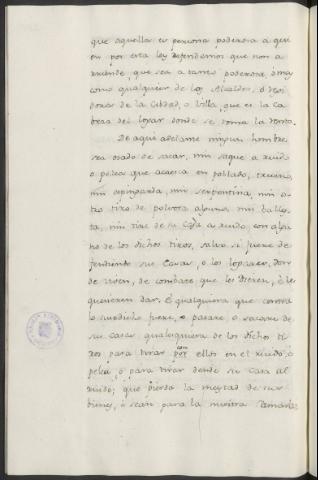 que aquella es persona poderosa à qui
en por esta ley defendemos que non a
rriende, que sea à tanto poderosa, ò mas
como qualquier de los Alcaldes, ò Regi
dores de la Ciudad, o Villa, que es la Ca
beza del lugar donde se toma la renta.
De aqui adelante ningun hombre
sea osado de sacar, nin saque a ruido
o pelea que acaesca en poblado, trueno,
nin espingarda, nin serpentina, nin o
tro tiro de polvora alguno, nin balles
ta, nin tire de su casa a ruido con algu
no de los dichos tiros, salvo si fuere de
fendiendo sus Casas, o los logares, don
de viven, de combate que les dieren, ò les
quisieren dar. E qualquiera que contra
lo susodicho fuere, o pasare, o sacare de
sus casas qualesquiera de los dichos ti
ros para tirar con ellos en el ruido, ò
pelea, ò para tirar desde su casa al
ruido; que pierda la meytad de sus
bienes, è sean para la nuestra Camara